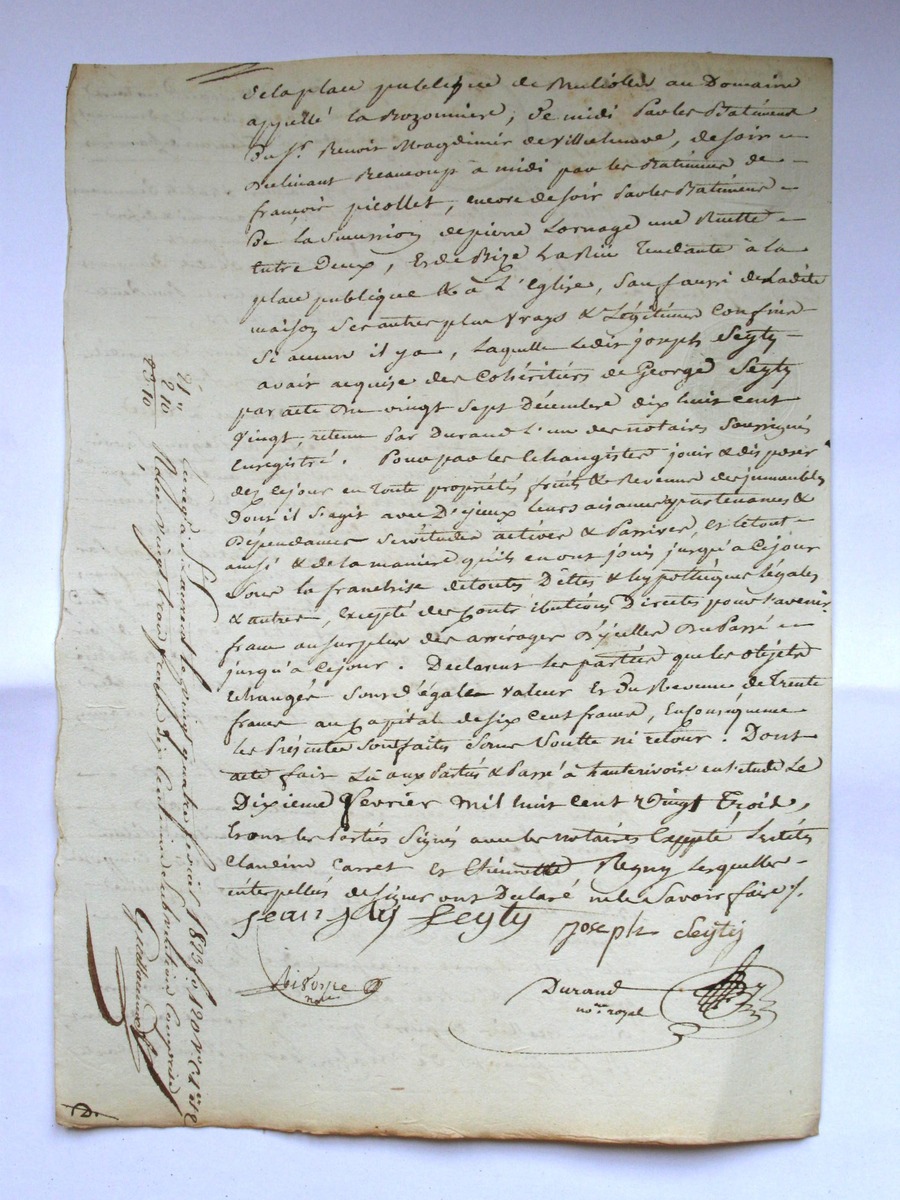 de la place publique de au Domaine
appellé la Rozonniere, de midi par les Batiments
du Sr. Benoit de Villeneuve, de soir
declinant Beaucoup à midi par les Batiments de
françois picollet, encore de soir par les Batiments
De la Succession de pierre Lornage une Ruette
Entre Deux, et de Bize La Rue Tendante à la
place publique & à L'Eglise, Sauf aussi de Ladite
maison Ses autres plus vrays & Légitimes Confins
Si aucuns il y a, Laquelle Ledit joseph Seyty
avait acquise des Cohéritiers de George Seyty
par acte du vingt Sept Décembre dix huit cent
vingt, retenu par Durand l'un des notaires Soussignés
Enregistré. Pour par les Echangistes jouir & disposer
dez cejour en toute propriétés fruits & Revenus des immeubles
Dont il S'agit avec D'iceux leurs aisances apartenances &
Dépendances Servitudes actives & Passives, et le tout
ainsi & de la manière qu'ils en ont jouis jusqu'à cejour
Sous la franchise de toutes Dettes & hypothèques légales
& autres, Excepté des Contributions Directes pour l'avenir
franc au surplus des arrérages D'icelles du Passé
jusqu'à cejour. Declarent les parties que les objets
Echangés Sont d'égale valeur Et Du Revenu de Trente
francs au Capital de Six Cent francs, En Conséquence
les Présentes Sont faites Sans Soulte ni retour. Dont
acte fait Lu aux Parties & Passé à hauterivoire en Etude Le
Dixieme fevrier mil huit cent vingt Trois,
Et ont les Parties Signés avec les notaires Excepté Lesdites
Claudine Carret et Etiennette Regny Lesquelles
interpellés de Signer ont Déclaré ne le Savoir faire ./.
jean Seyty joseph Seyty
nore
Durand
nore. royal
21"
2 10
23 10
Enregé à St Laurent le vingt quatre fevrier 1823 fo 120 Vo C
Reçu vingt trois francs dix Centimes Subvention Comprise